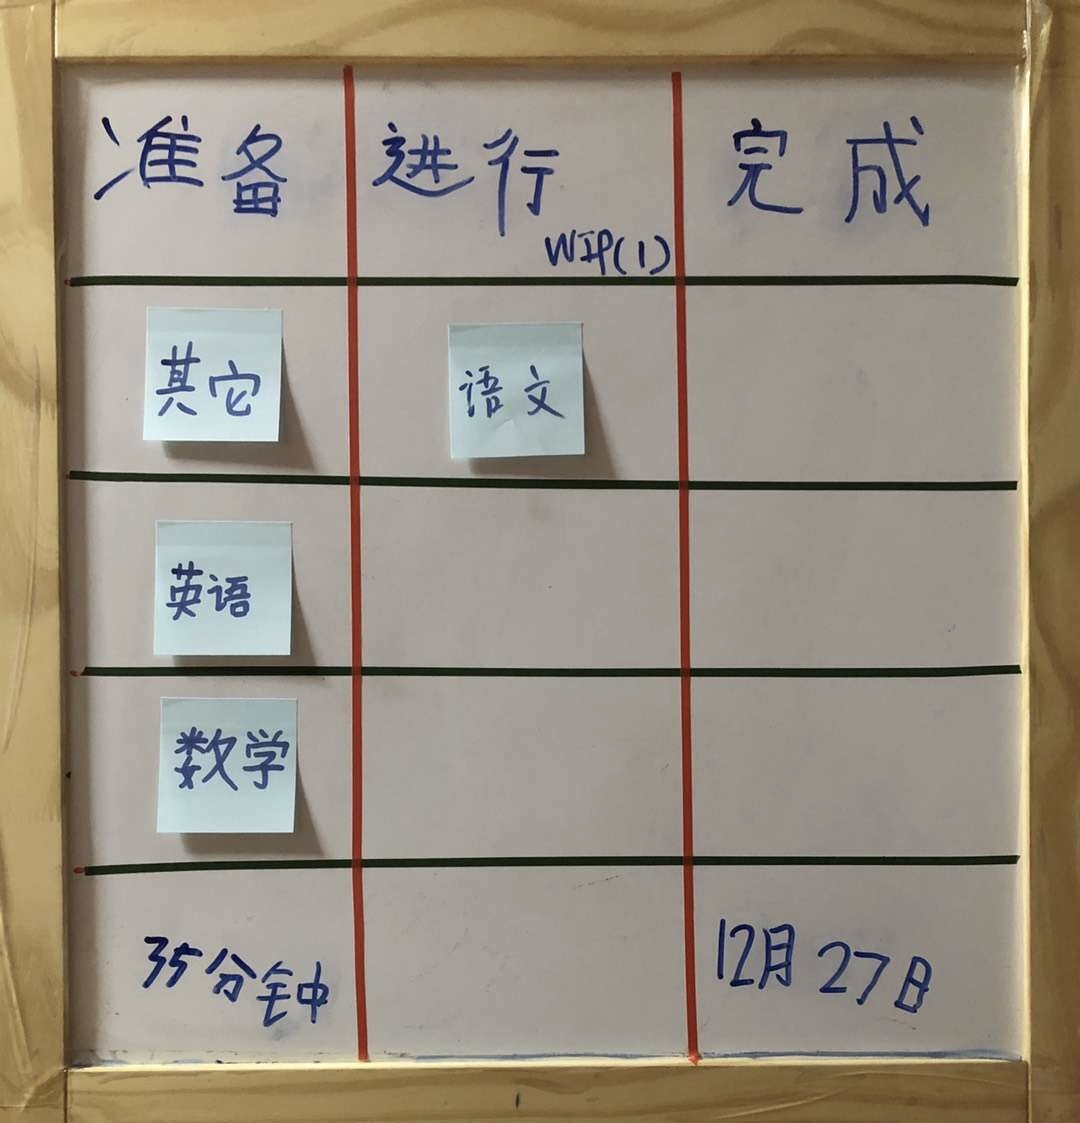 准备 进行 完成
WIP(1)
其它 语文
英语
数学
35分钟 12月27日